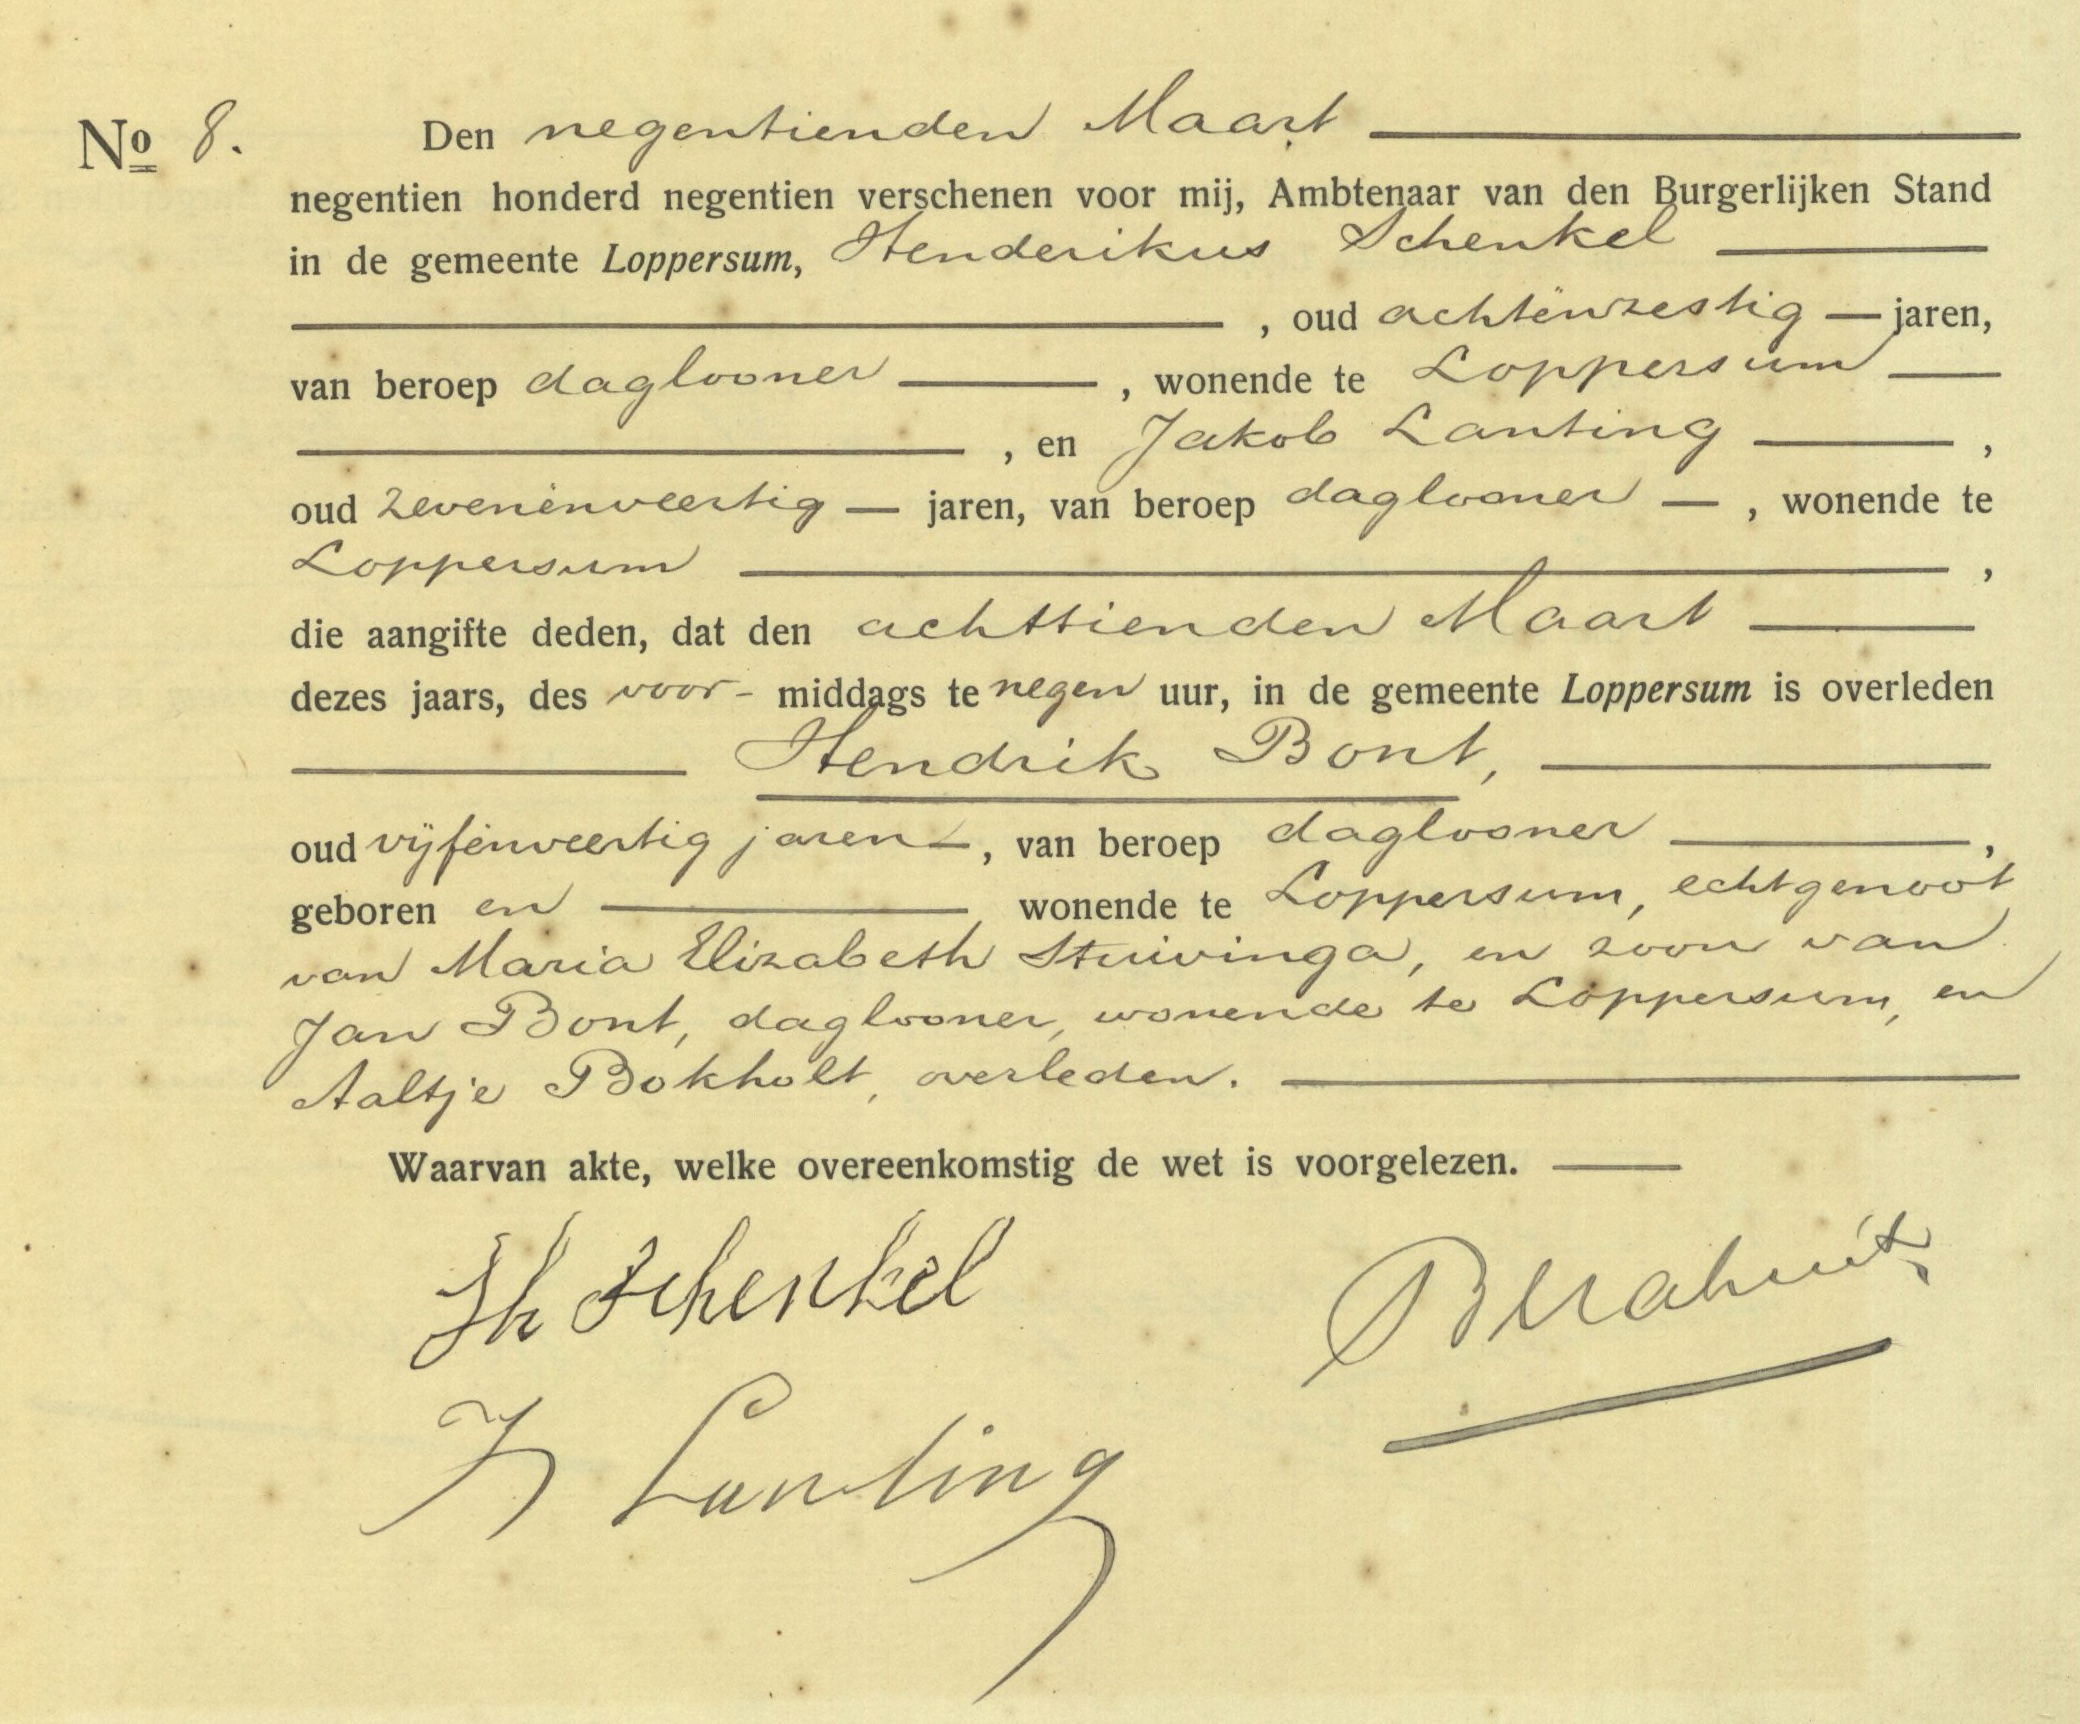 No 8. Den negentienden Maart
negentien honderd negentien verschenen voor mij, Ambtenaar van den Burgerlijken Stand
in de gemeente Loppersum, Henderikus Schenkel
, oud achtënzestig — jaren,
van beroep daglooner , wonende te Loppersum
, en Jakob Lanting ,
oud zevenënveertig — jaren, van beroep daglooner — , wonende te
Loppersum ,
die aangifte deden, dat den achttienden Maart
dezes jaars, des voor- middags te negen uur, in de gemeente Loppersum is overleden
Hendrik Bont,
oud vijfënveertig jaren —, van beroep daglooner ,
geboren en wonende te Loppersum, echtgenoot
van Maria Elizabeth Stuivinga, en zoon van
Jan Bont, daglooner, wonende te Loppersum, en
Aaltje Bokholt, overleden.
Waarvan akte, welke overeenkomstig de wet is voorgelezen.
Schenkel
Lanting